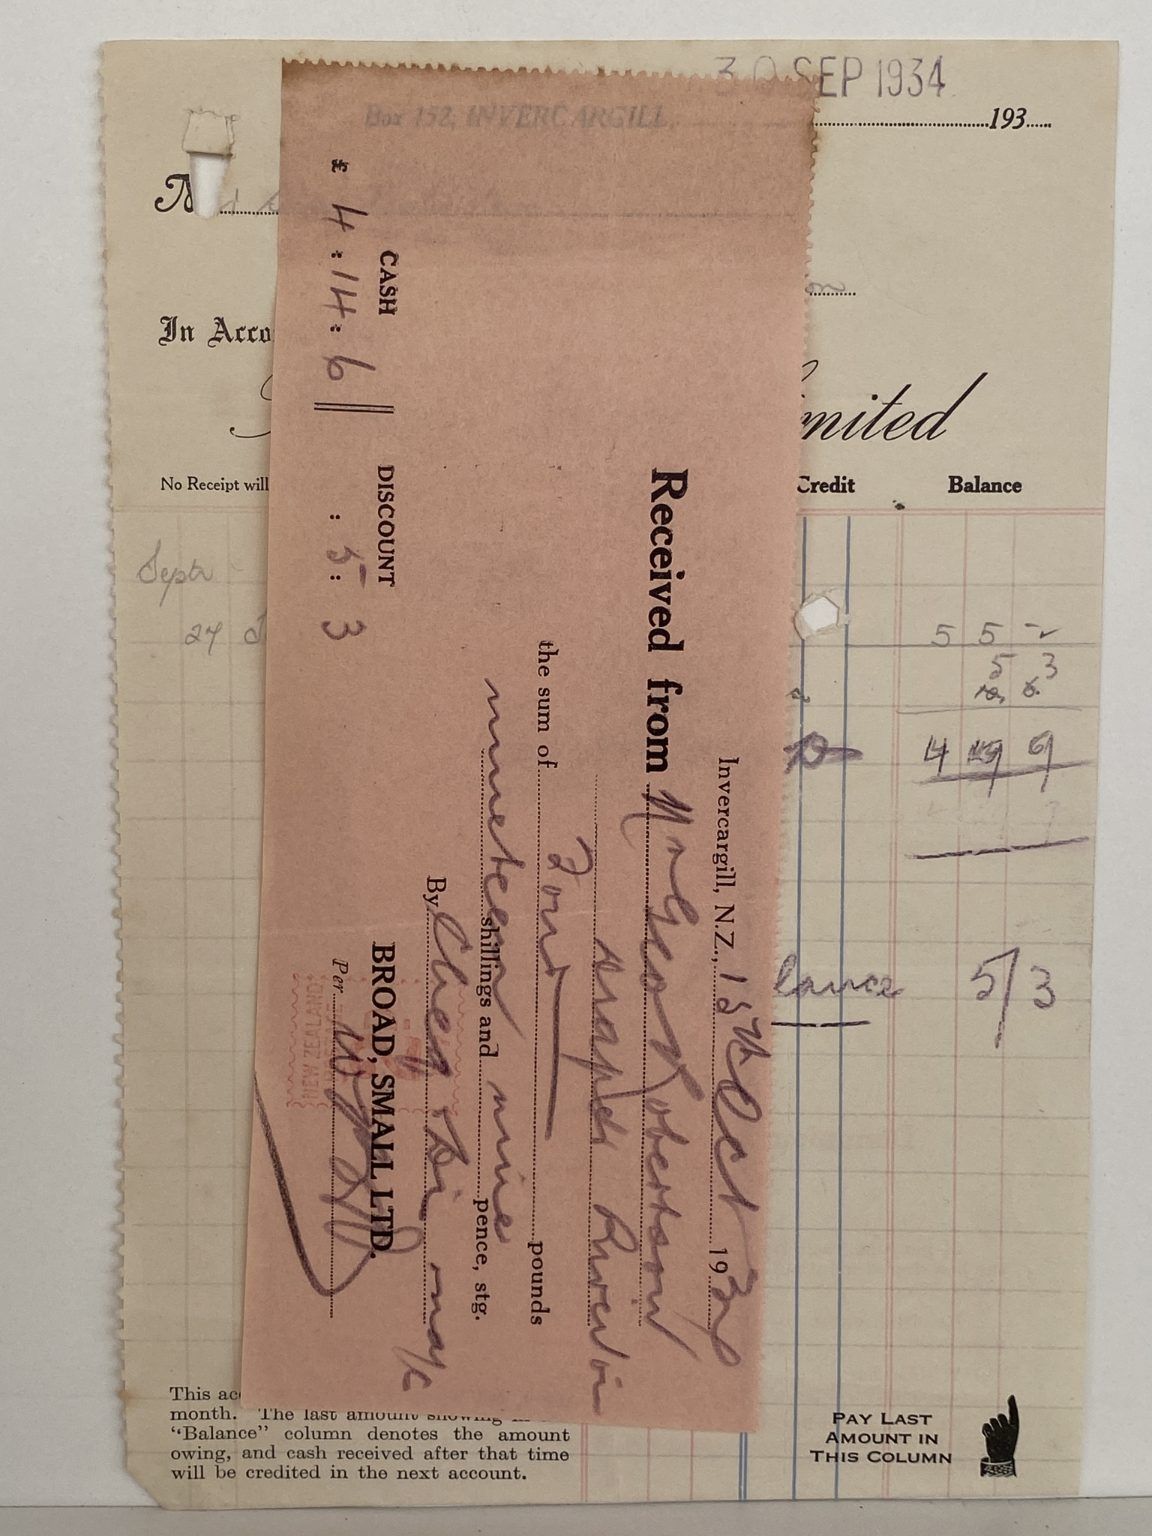 30 SEP 1934
Box 152, INVERCARGILL,
193
In Acco
mited
No Receipt will
Credit Balance
Septr
27
5 5 -
5 3
4 19 9
lance 5/3
This acc
month. The last amount showing in
"Balance" column denotes the amount
owing, and cash received after that time
will be credited in the next account.
PAY LAST
AMOUNT IN
THIS COLUMN
Invercargill, N.Z., 15th Oct 1934
Received from Mr Geo Robertson
the sum of Four pounds
nineteen shillings and nine pence, stg.
By Cheq
BROAD, SMALL LTD.
Per
CASH DISCOUNT
£ 4 : 14 : 6 : 5 : 3
NEW ZEALAND